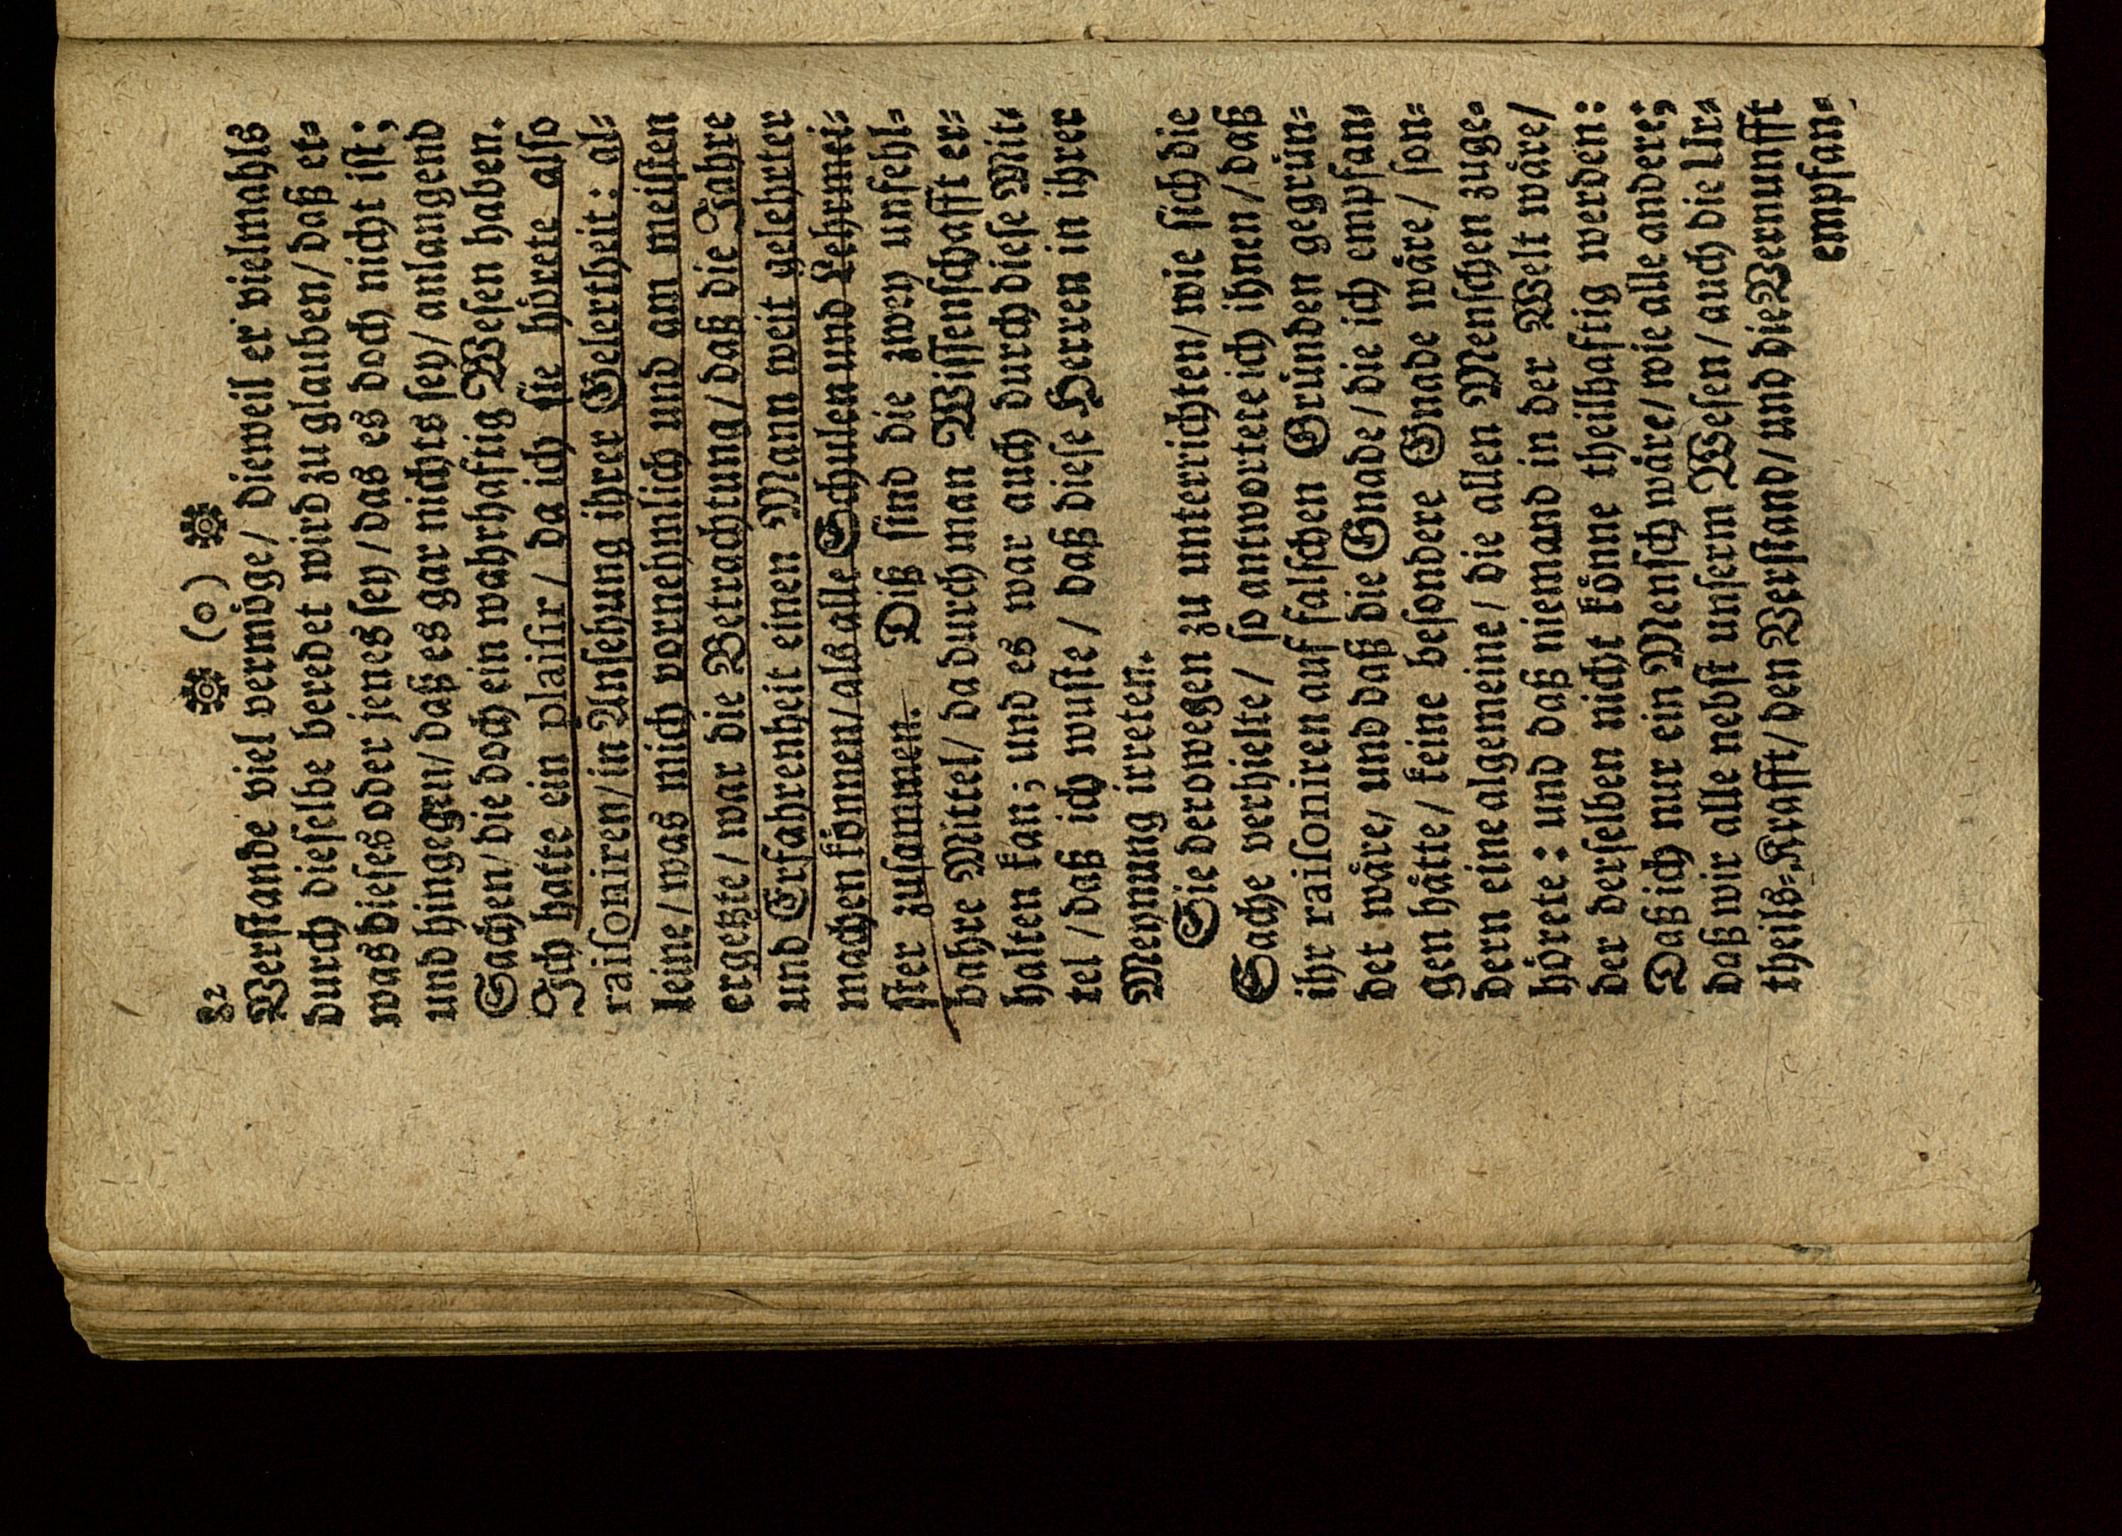 82 ❁ (o) ❁
Verſtande viel vermöge/ dieweil er vielmahls
durch dieſelbe beredet wird zu glauben/ daß et⸗
was dieſes oder jenes ſey/ das es doch nicht iſt;
und hingegen/ daß es gar nichts ſey/ anlangend
Sachen/ die doch ein wahrhaftig Weſen haben.
Ich hatte ein plaiſir/ da ich ſie hörete alſo
raiſonairen/ in Anſehung ihrer Gelertheit: al⸗
leine/ was mich vornehmlich und am meiſten
ergetzte/ war die Betrachtung/ daß die Jahre
und Erfahrenheit einen Mann weit gelehrter
machen können/ als alle Schulen und Lehrmei⸗
ſter zuſammen. Diß ſind die zwey unfehl⸗
bahre Mittel/ da durch man Wiſſenſchafft er⸗
halten kan; und es war auch durch dieſe Mit⸗
tel/ daß ich wuſte/ daß dieſe Herren in ihrer
Meynung irreten.
Sie derowegen zu unterrichten/ wie ſich die
Sache verhielte/ ſo antwortete ich ihnen/ daß
ihr raiſoniren auf falſchen Gründen gegrün⸗
det wäre/ und daß die Gnade/ die ich empfan⸗
gen hätte/ keine beſondere Gnade wäre/ ſon⸗
dern eine algemeine/ die allen Menſchen zuge⸗
hörete: und daß niemand in der Welt wäre/
der derſelben nicht könne theilhaftig werden:
Daß ich nur ein Menſch wäre/ wie alle andere;
daß wir alle nebſt unſerm Weſen/ auch die Ur⸗
theils⸗Krafft/ den Verſtand/ und die Vernunfft
empfan⸗